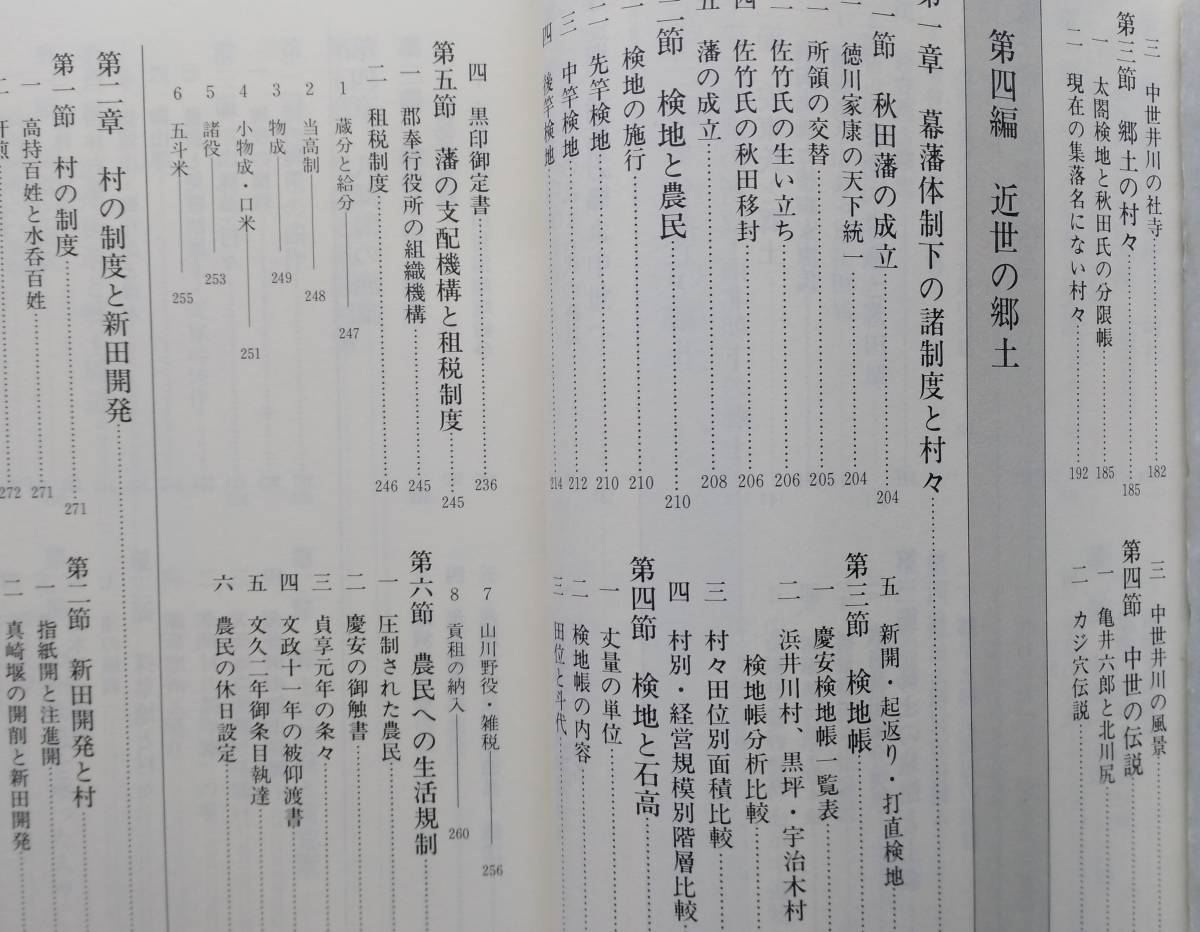 三 中世井川の社寺……182
第三節 郷土の村々……185
一 太閤検地と秋田氏の分限帳……185
二 現在の集落名にない村々……192
三 中世井川の風景……
第四節 中世の伝説……
一 亀井六郎と北川尻……
二 カジ穴伝説……
第四編 近世の郷土
第一章 幕藩体制下の諸制度と村々……
一節 秋田藩の成立……204
徳川家康の天下統一……204
所領の交替……205
佐竹氏の生い立ち……206
四 佐竹氏の秋田移封……206
五 藩の成立……208
二節 検地と農民……210
一 検地の施行……210
二 先竿検地……210
三 中竿検地……212
四 後竿検地……214
五 新開・起返り・打直検地……
第三節 検地帳……
一 慶安検地帳一覧表……
二 浜井川村、黒坪・宇治木村
検地帳分析比較……
三 村々田位別面積比較……
四 村別・経営規模別階層比較……
第四節 検地と石高……
一 丈量の単位……
二 検地帳の内容……
三 田位と斗代……
四 黒印御定書……236
第五節 藩の支配機構と租税制度……245
一 郡奉行役所の組織機構……245
二 租税制度……246
1 蔵分と給分――247
2 当高制――248
3 物成――249
4 小物成・口米――251
5 諸役――253
6 五斗米――255
7 山川野役・雑税――256
8 貢租の納入――260
第六節 農民への生活規制……
一 圧制された農民……
二 慶安の御触書……
三 貞享元年の条々……
四 文政十一年の被仰渡書……
五 文久二年御条目執達……
六 農民の休日設定……
第二章 村の制度と新田開発……
第一節 村の制度……271
一 高持百姓と水呑百姓……271
二 肝煎……272
第二節 新田開発と村……
一 指紙開と注進開……
二 真崎堰の開削と新田開発……